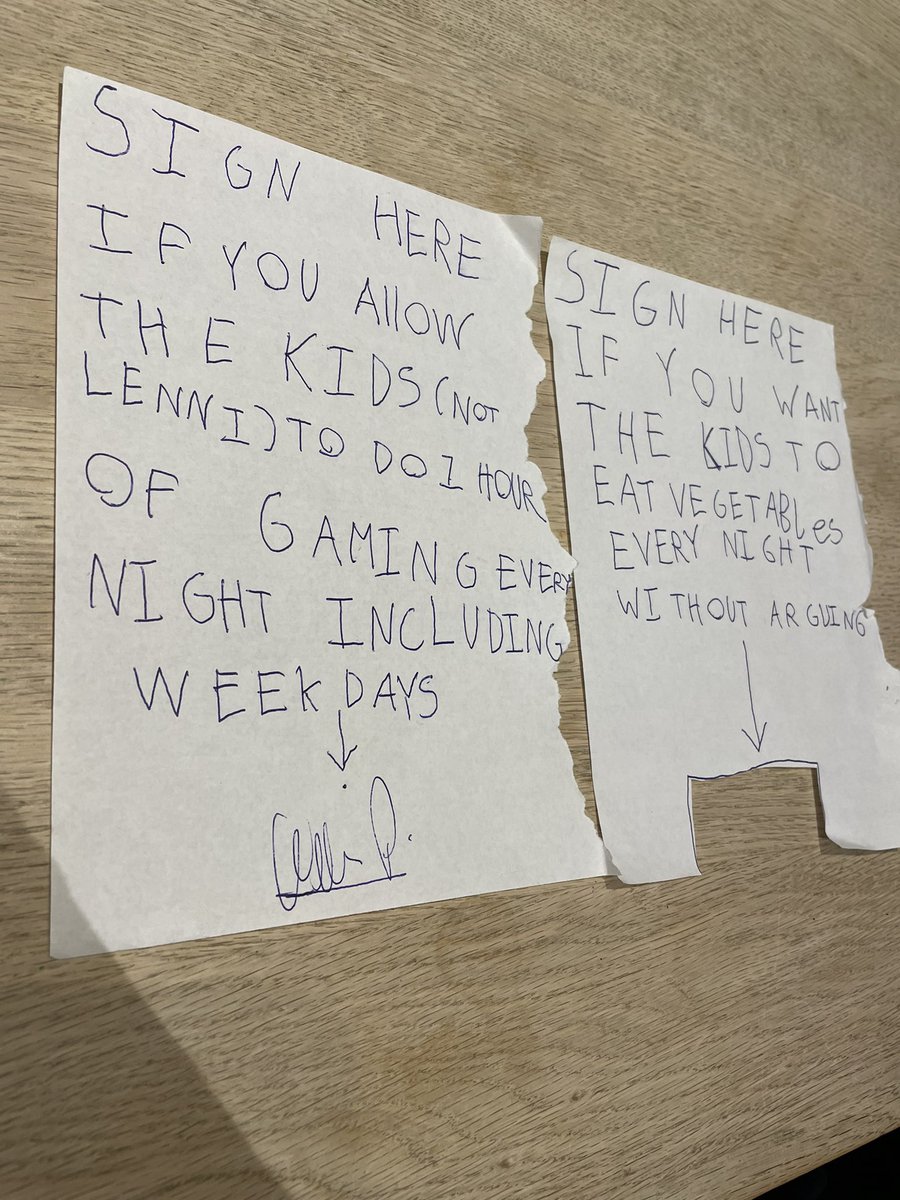 SIGN HERE
IF YOU AllOW
THE KIDS (NOT
LENNI) TO DO 1 HOUR
OF GAMING EVERY
NIGHT INCLUDING
WEEKDAYS
SIGN HERE
IF YOU WANT
THE KIDS TO
EAT VEGETABLes
EVERY NIGHT
WITHOUT ARGUING